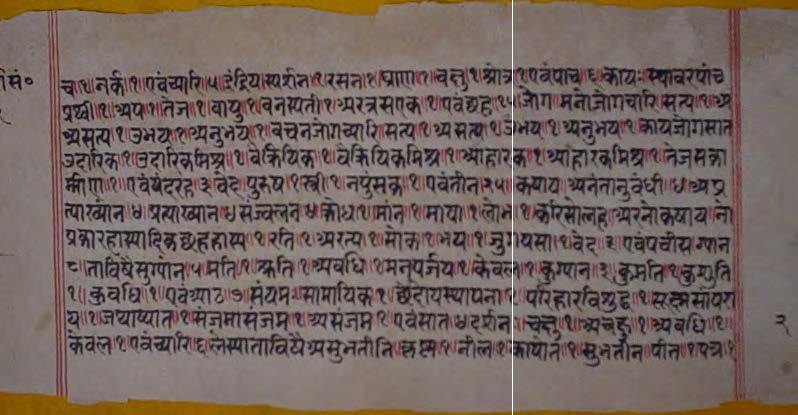 च॥१॥नर्क॥१॥एवंच्यारि॥५॥इंद्रियास्पर्शन॥१॥रसना॥१॥घ्राण॥१॥चक्षु॥१॥श्रोत्र॥१॥एवंपांच॥६॥काय॥स्थावरपांच
प्रथ्वी॥१॥अप॥१॥तेज॥१॥वायु॥१॥वनस्पती॥१॥अरत्रसएक॥१॥एवंछह॥१५॥जोग॥मनोजोगचारि॥सत्य॥१॥अ
असत्य॥१॥उभय॥१॥अनुभय॥१॥वचनजोगच्यारि॥सत्य॥१॥असत्य॥१॥उभय॥१॥अनुभय॥१॥कायजोगसात
उदारिक॥१॥उदारिकमिश्र॥१॥वेक्रियिक॥१॥वेक्रियिकमिश्र॥१॥आहारक॥१॥आहारकमिश्र॥१॥तेजसका
र्माण॥१॥एवंपंदरह॥३॥वेद॥पुरुष॥१॥स्त्री॥१॥नपुंसक॥१॥एवंतीन॥२५॥कषाय॥अनंतानुबंधी॥४॥अप्र
त्याख्यान॥४॥प्रत्याख्यान॥४॥संज्वलन॥४॥क्रोध॥१॥मांन॥१॥माया॥१॥लोभ॥१॥करिसोलह॥अरनोकषाय॥नो
प्रकारहास्यादिकछहहास्य॥१॥रति॥१॥अरत्य॥१॥सोक॥१॥भय॥१॥जुगपसा॥१॥वेद॥३॥एवंपचीस॥ग्यान
८॥ताविषैसुग्पांन॥५॥मति॥१॥श्रुति॥१॥अवधि॥१॥मनपर्जय॥१॥केवल॥१॥कुग्पान॥३॥कुमति॥१॥कुश्रुति
१॥कुवधि॥१॥एवंआठ॥७॥संयम॥सामायिक॥१॥छेदोपस्थापना॥१॥परिहारविशुद्ध॥१॥सूक्ष्मसांपरा
य॥१॥जथाख्यात॥१॥संजमासंजम॥१॥असंजम॥१॥एवंसात॥४॥दर्शन॥चक्षु॥१॥अचक्षु॥१॥अवधि॥१॥
केवल॥१॥एवंच्यारि॥६॥लेस्याताविषैअसुभतीनि॥क्रष्न॥१॥नील॥१॥कापोत॥१॥सुभतीन॥पीत॥१॥पद्म॥१
२